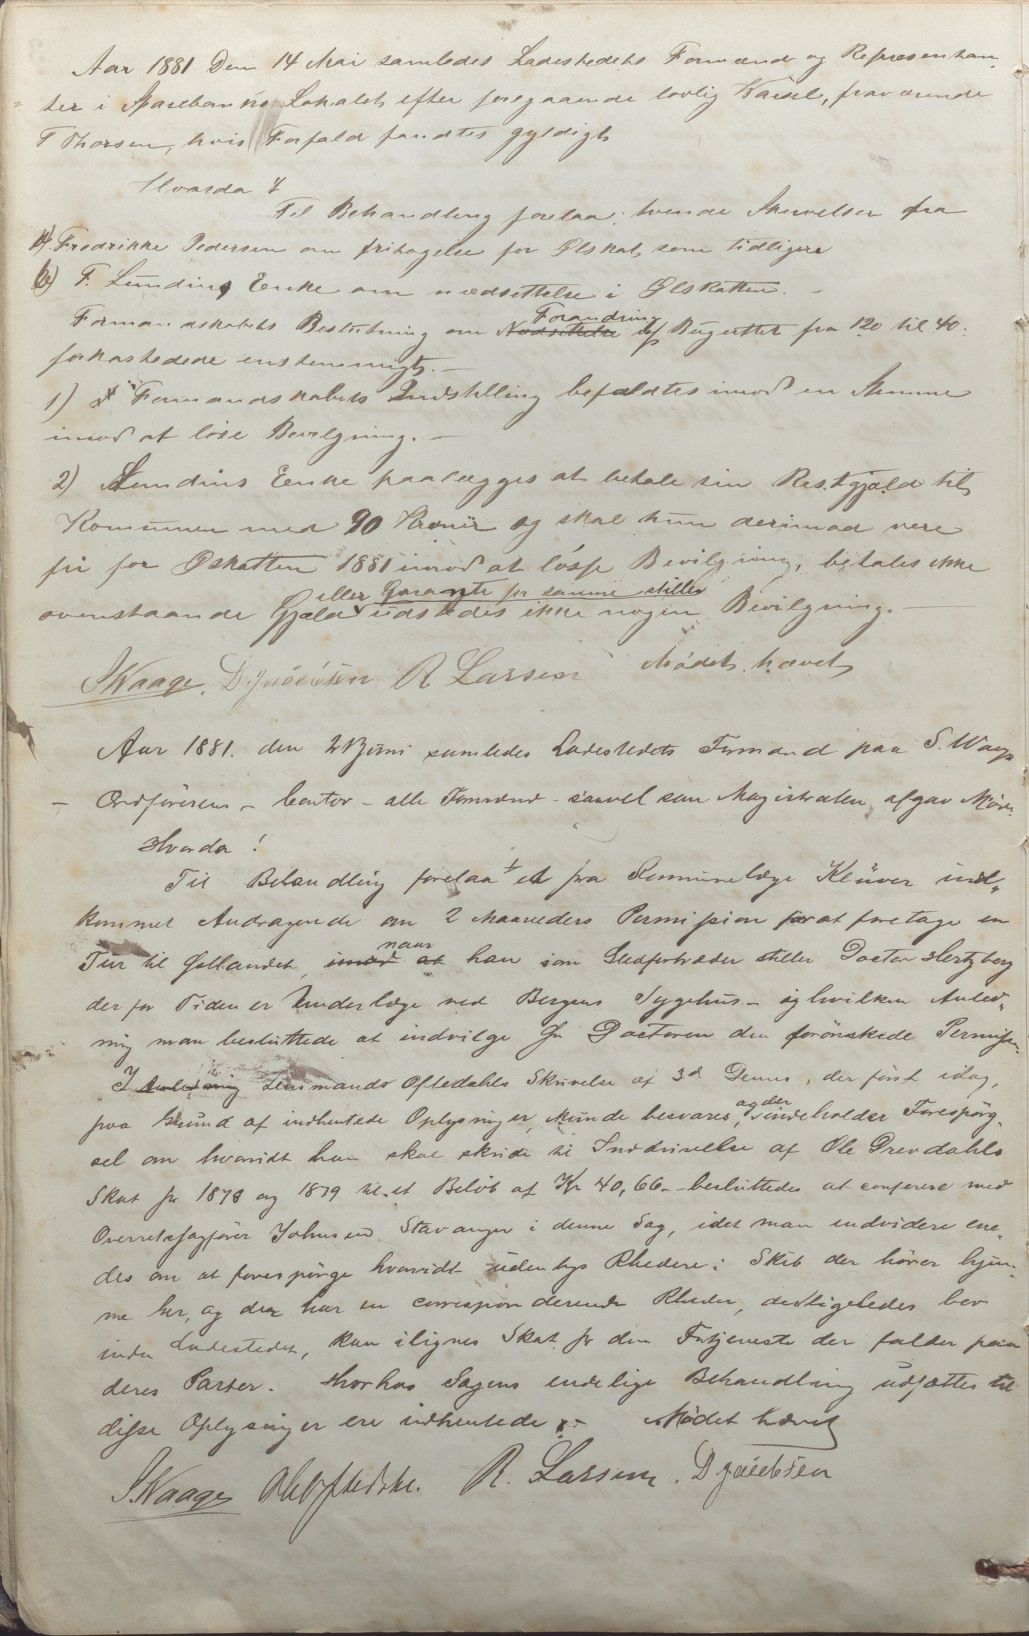 Aar 1881 Den 14 Mai samledes Ladestedets Formænd og Repræsentan-
ter i Sparebankens Lokale efter foregaaende lovlig Varsel, fraværende
T Thorsen, hvis Forfald fandtes gyldigt
Hvorda
Til Behandling forelaa: tvende Skrivelser fra
1) Fredrikke Pedersen om fritagelse for Ølskat som tidligere
2) F. Lundins Enke om nedsettelse i Ølskatten. -
Forandring
Formandskabets Beslutning om Nedsettelse af fra 120 til 40.
forkastedede enstemmigt. -
1) Formandskabets Indstilling befaldtes imod en Stemme
imod at løse Bevilgning. -
2) Lundins Enke paalægges at betale sin Restgjæld til
Kommunen med 90 Kroner og skal hun derimod være
fri for Ølskatten 1881 imod at løsse Bevilgning, betales ikke
eller Garante for samme stilles
ovenstaande Gjæld udstedes ikke nogen Bevilgning. -
S Waage. D. Jacobsen R Larsen Mødet hævet
Aar 1881. den 21 Juni samledes Ladestedets Formænd paa S. Waage
- Ordførerens - Contor - alle Formænd - saavel som Magistraten afgav Møde
Hvorda!
Til Behandling forelaa 1/ et fra Kommunelæge Klüver ind-
kommet Andragende om 2 Maaneders Permission for at foretage en
naar
Tur til Østlandet, imod at han som Stedfortræder stiller Doctor Hertzberg
der for Tiden er Underlæge ved Bergens Sygehus - i hvilken Anled-
ning man besluttede at indvilge Hr Doctoren den forönskede Permission
I Anledning Lensmands Oftedahls Skrivelse af 3d Dennes, der först idag,
og der
paa Grund af indhentede Oplysninger, kunde besvares, indeholder Forespörg-
sel om hvorvidt han skal skride til Inddrivelse af Ole Drevdahls
Skat for 1878 og 1879 til et Belöb af Kr 40,66 - besluttedes at conferere med
Overretssagförer Johnsen Stavanger i denne Sag, idet man endvidere ene-
des om at forespörge hvorvidt udenbys Rhedere i Skib der hörer hjem-
me her, og der har en correspronderende Rheder, der ligeledes bor
inden Ladestedet, kan ilignes Skat for den Fortjeneste der falder paa
deres Parter. Hvorhos Sagens endelige Behandling udsættes til
disse Oplysninger ere indhentede. - Mödet hævet
S. Waage R. Larsen. D Jacobsen